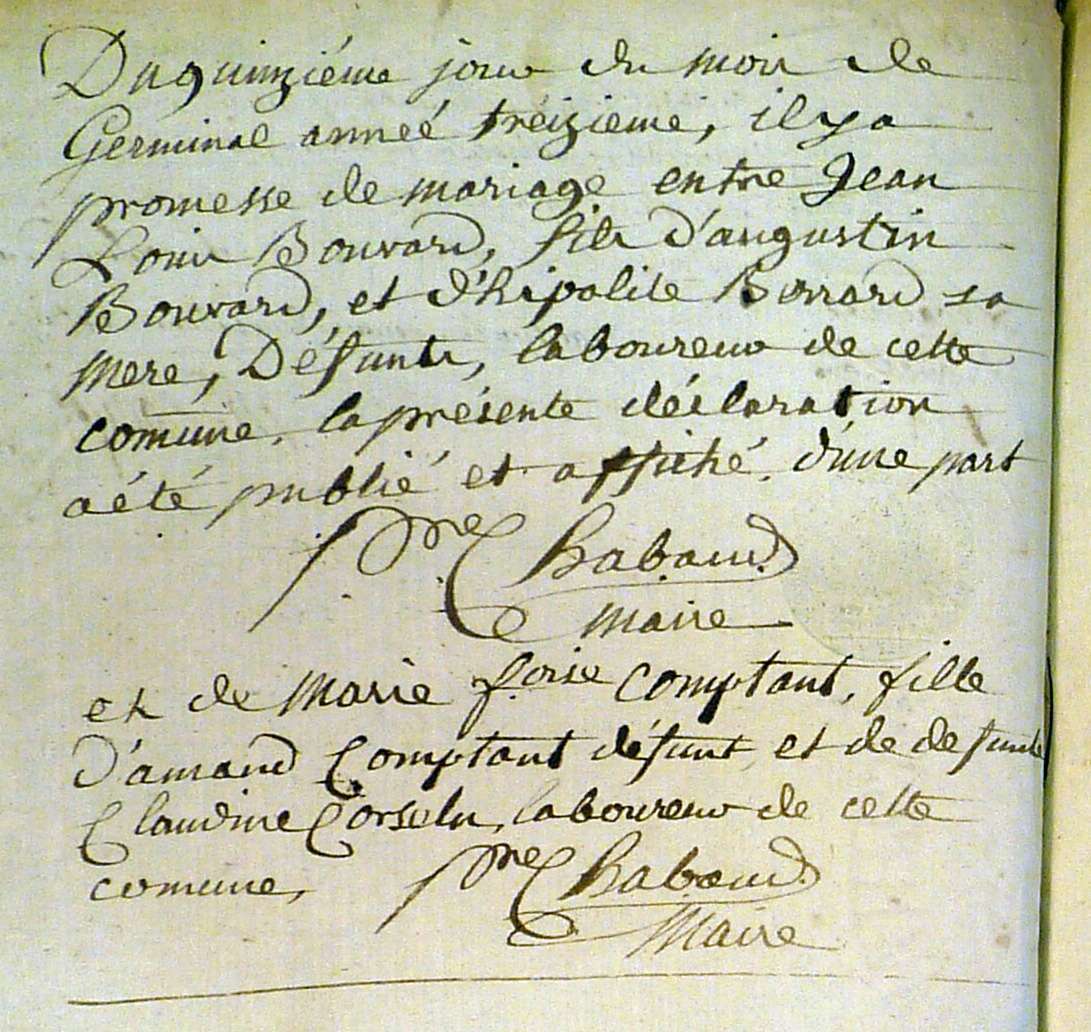 Du quinziéme jour du mois de
Germinal anneé treizieme, il y a
promesse de mariage entre Jean
Louis Bouvard, fils d'augustin
Bouvard, et d'hipolite Burrard sa
mere, Défunts, laboureur de cette
comune, la présente déclaration
a été publié et affiché. d'une part
p.re Chabaud
Maire
et de Marie f.oise Comptant, fille
d'amand Comptant défunt, et de defunte
Claudine Corselu, laboureur de cette
comune, p.re Chabaud
Maire